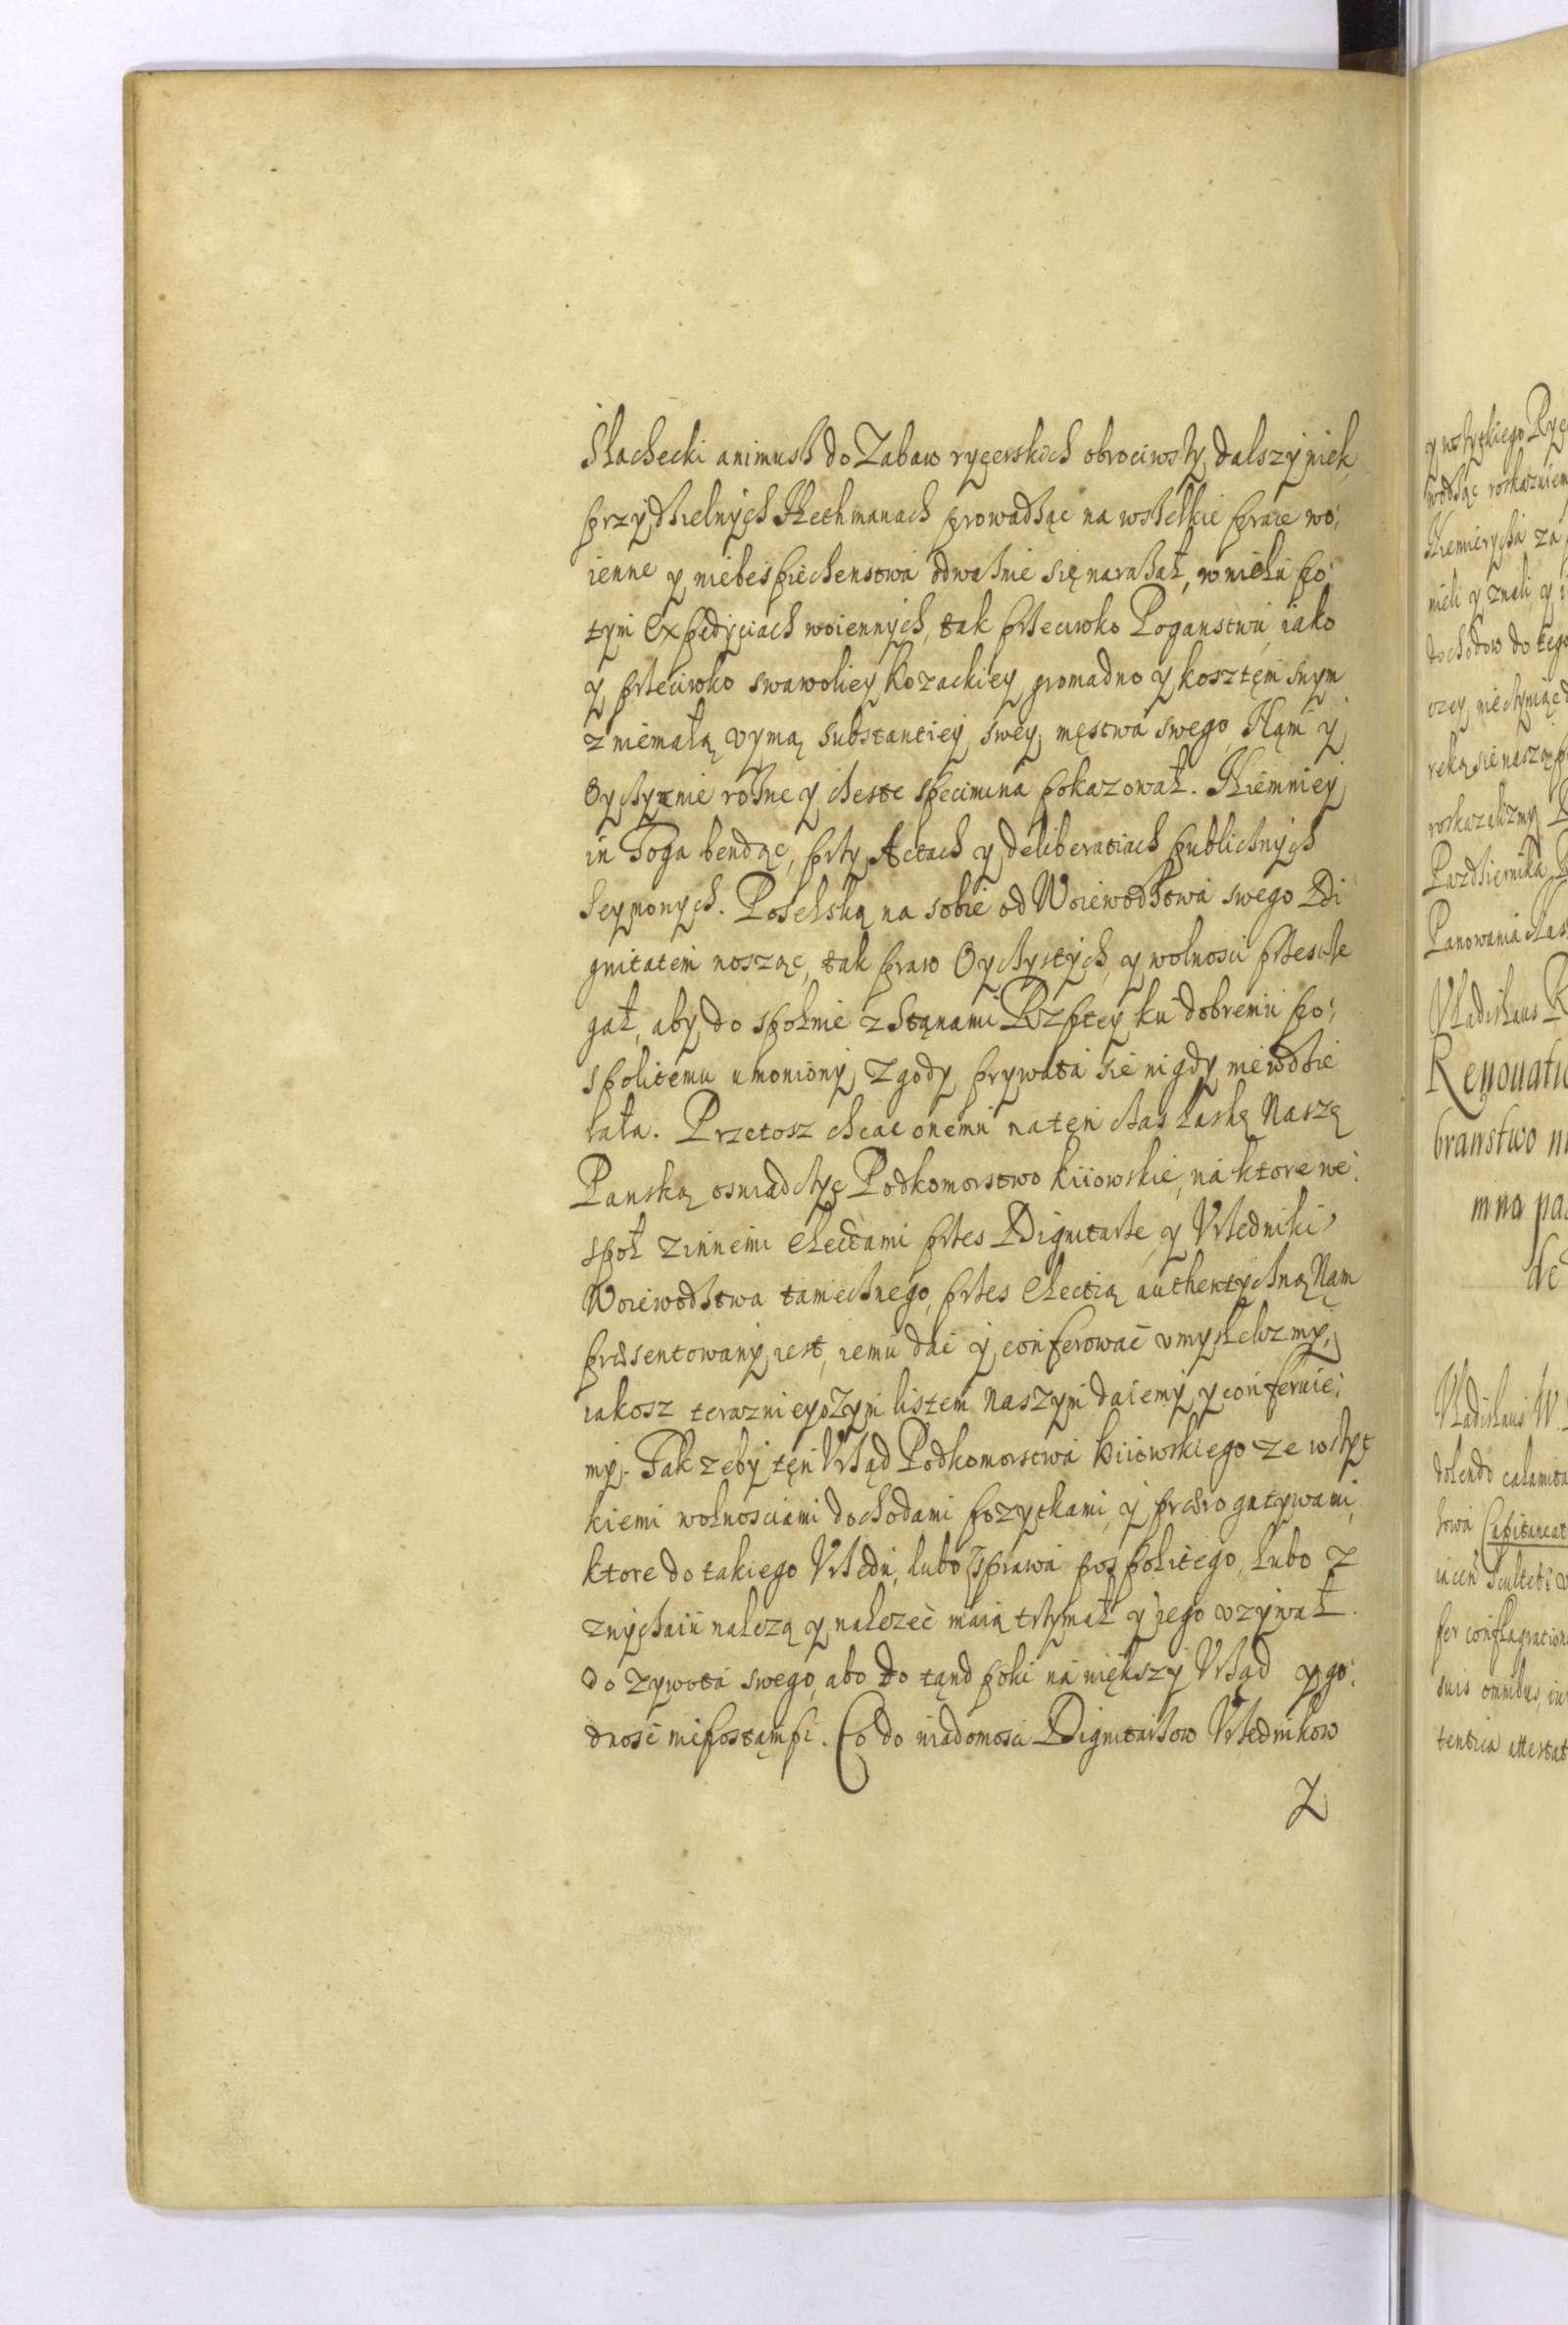 Slachecki animusz do Zabaw rycerskich obrociwszy, dalszy wiek
przy dzielnych Hethmanach prowadząc na wszelkie prace wo:
ienne y niebespieczenstwa odważnie się narażał, w wielu po:
tym expedyciach woiennych, tak przeciwko Poganstwu, iako
y przeciwko swawoliey Kozackiey, gromadno y kosztęm swym
z niemałą vymą substantiey swey, męstwa swego Nąm y
Oyczyznie rożne y częste specimina pokazował. Niemniey
in Toga bendąc, przy Actach y deliberatiach publicznych
Seymowych. Poselską na sobie od Woiewodztwa swego Di
gnitatem nosząc, tak praw Oyczystych, y wolnosci przestrze
gał, aby do społnie z Stąnami Rzptey ku dobremu po:
spolitemu umowiony zgody prywata sie nigdy niewdzie
rała. Przetosz chcąc onemu na tęn czas łaskę Naszą
Panską oswiadczyc Podkomorstwo kiiowskie, na ktore we:
społ z innemi electami przes Dignitarze y Vrzędniki
Woiewodztwa tamecznego, przes electią authentyczną Nąm
præsentowany iest, iemu dać y conferować vmyslelizmy,
iakosz teraznieyszym listem Naszym daiemy y conferuie:
my. Tak zeby tęn Vrząd Podkomorstwa kiiowskiego ze wszyt
kiemi wolnosciami dochodami pozytkami, y prærogatywami,
ktore do takiego Vrzędu, lubo z prawa pospolitego, lubo z
zwyczaiu nalezą y nalezeć maią trzymał y iego vzywał
do zywota swego, abo do tąnd poki na większy Vrząd y go:
dność niepostąmpi. Co do wiadomosci Dignitarzow Vrzednikow
Z
y wszytkiego Ryc
dochodow do tego
roskazalizmy
Pazdziernika
Panowania
Vladislaus R
Renouatio
branstwo
mna
de
Vladislaus IV
dolendo
Capitaneat
per conflagration
suis omnibus, in
tentica attestat